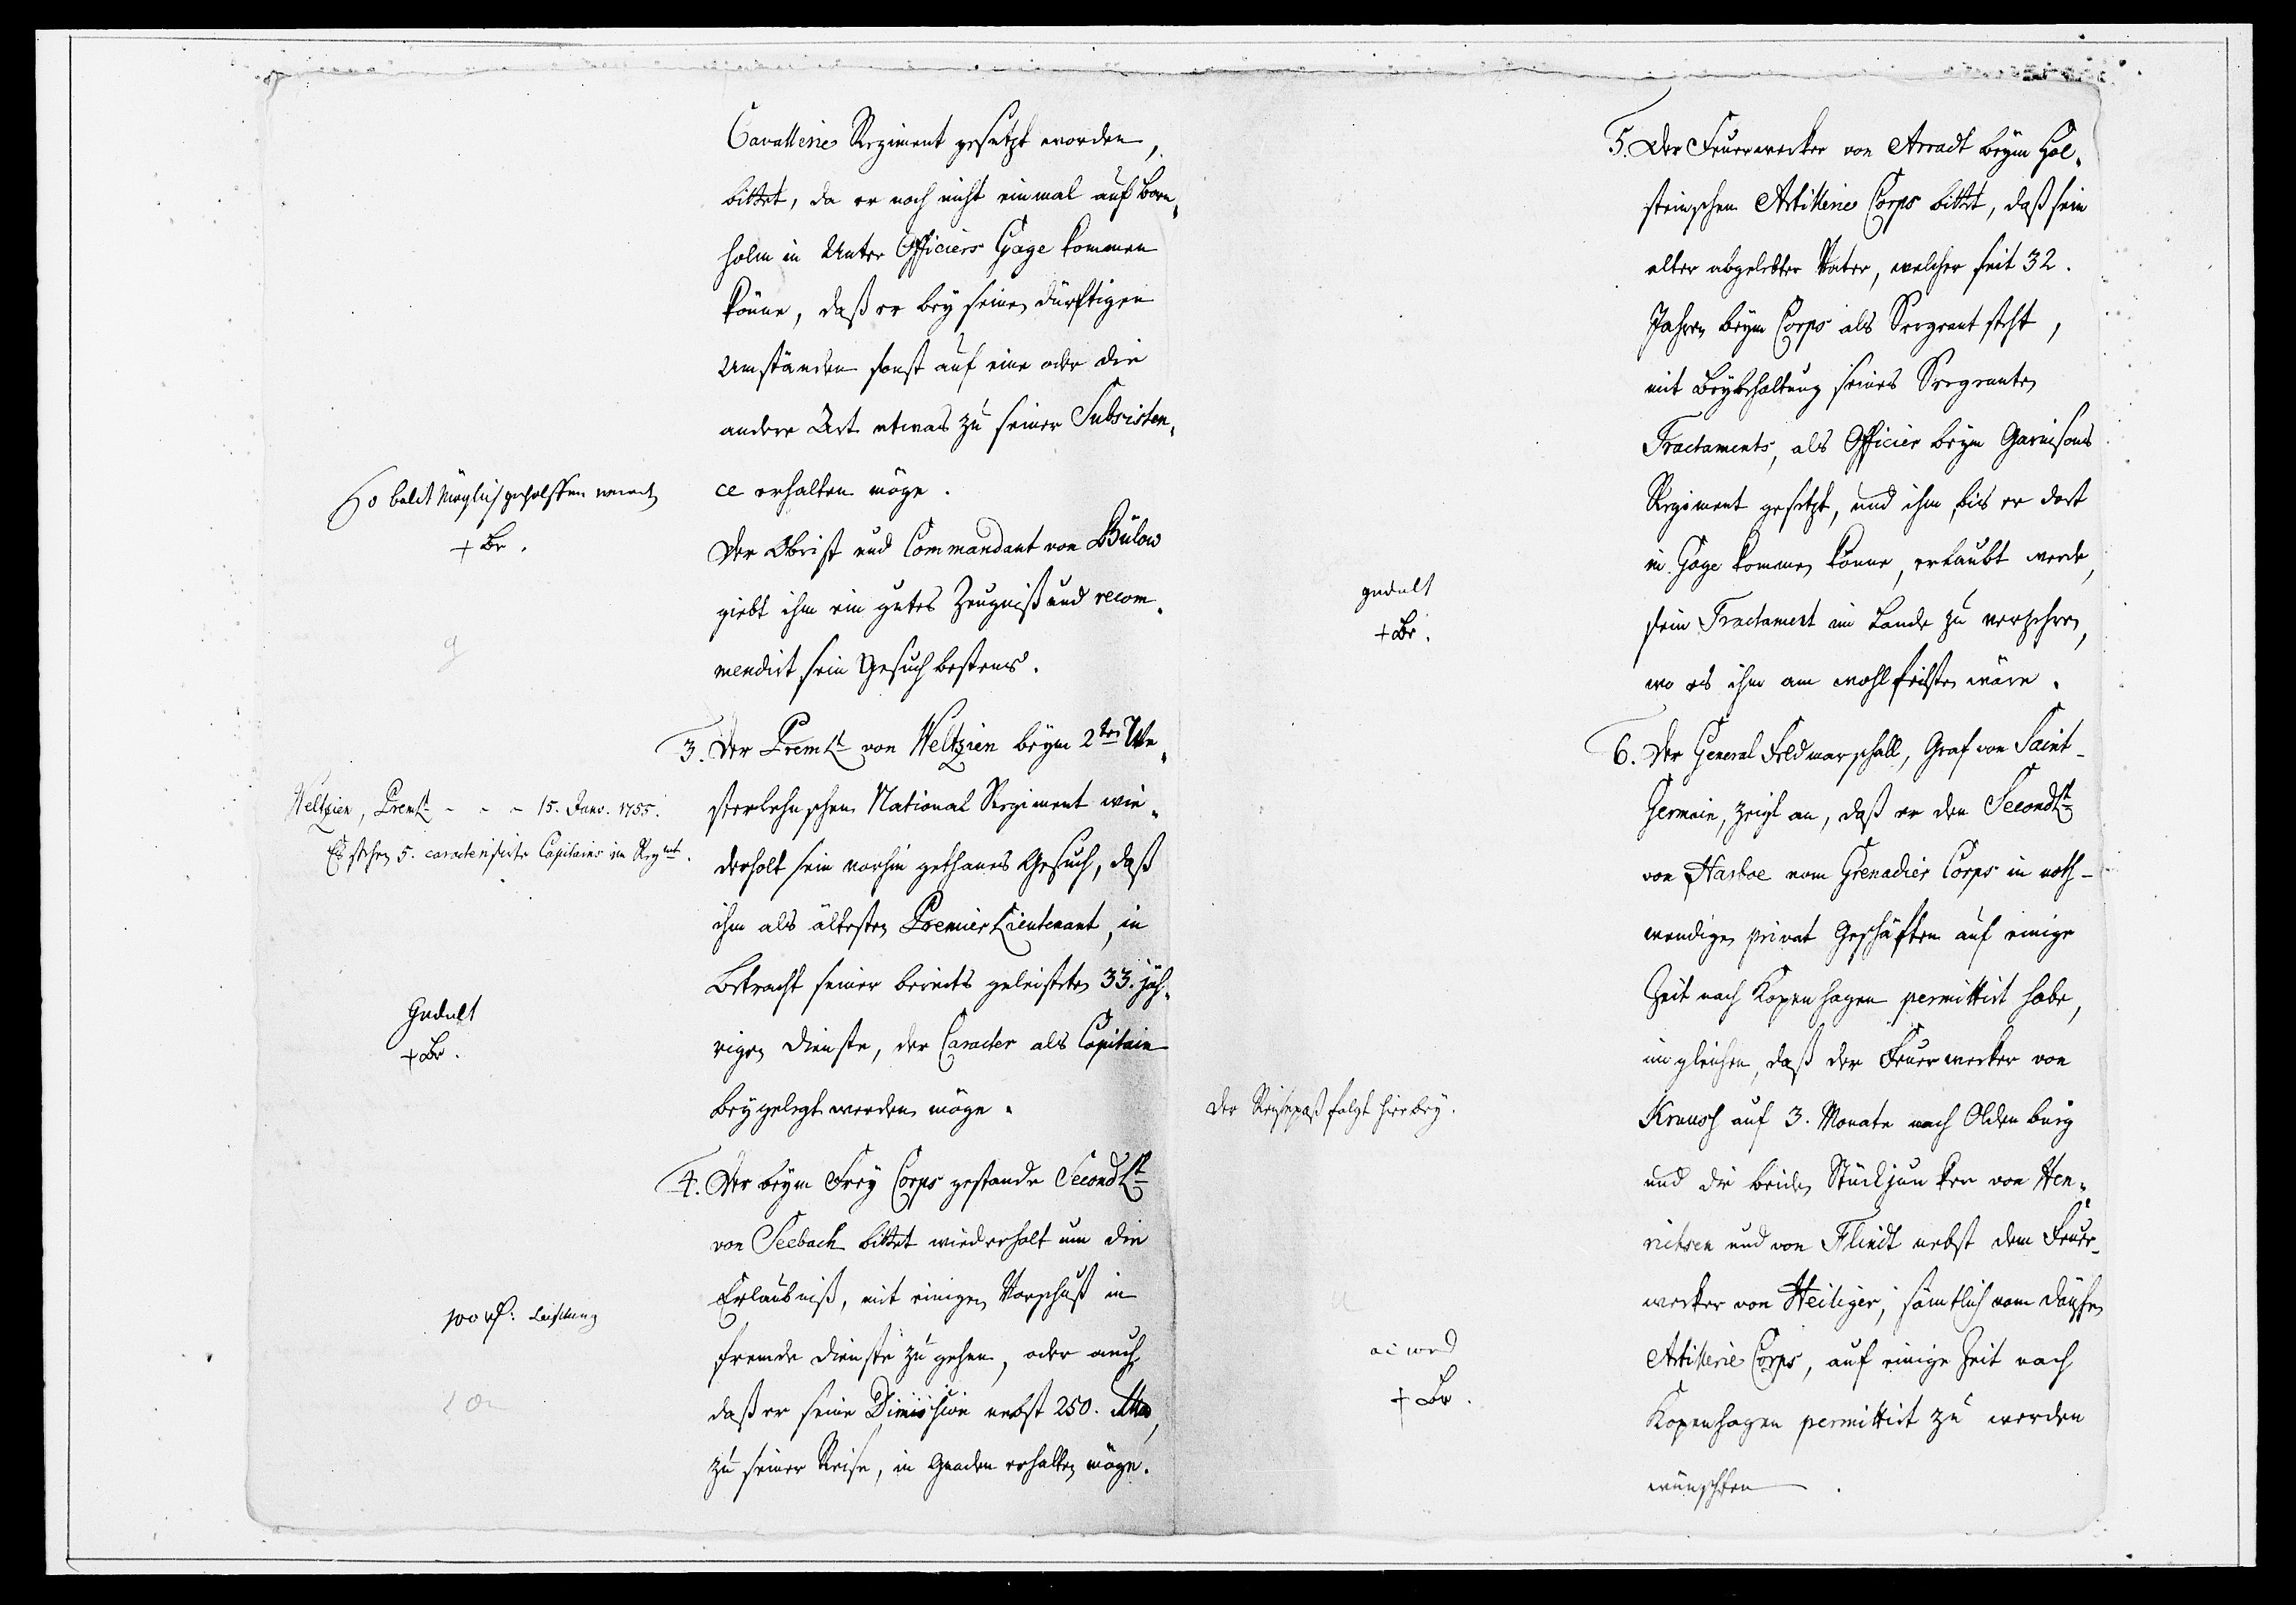 Cavallerie Regiment gesetzt worden,
bittet, da er noch nicht einmal auf Born-
holm in Unter Officiers Gage kommen
könne, daß er bey seinen dürftigen
Umständen sonst auf eine oder die
andere Art etwas zu seiner Subsisten-
ce erhalten möge.
Der Obrist und Commandant von Bülow
giebt ihm ein gutes Zeugniß und recom-
mendirt sein Gesuch bestens.
So baldt Möglich geholffen werd
+ Br.
3. Der Prem Lt von Weltzien beym 2ten We-
sterlehnschen National Regiment wie-
derholt sein vorhin gethanes Gesuch, daß
ihm als ältesten Premier Lieutenant, in
Betracht seiner bereits geleisteten 33. jäh-
rigen Dienste, der Caracter als Capitain
beygelegt werden möge.
Weltzien, Prem Lt - - - 15. Janv. 1755.
Es stehen 5. caracterisirte Capitains im Regmt.
Gedult
+ Br.
4. Der beym Frey Corps gestande Second Lt
von Seebach bittet wiederholt um die
Erlaubniß, mit einigen Vorschuß in
fremde Dienste zu gehen, oder auch
daß er seine Dimission nebst 250. Rthlr,
zu seiner Reise, in Gnaden erhalten möge.
100
5. Der Feuerwerker von Arradt beym Hol-
steinschen Artillerie Corps bittet, daß sein
alter abgelebter Vater, welcher seit 32.
Jahren beym Corps als Sergeant steht,
mit Beybehaltung seines Sergeanten
Tractaments, als Officier beym Garnisons
Regiment gesetzt, und ihm, bis er dort
in Gage kommen könne, erlaubt werde,
sein Tractament im Lande zu verzehren,
wo es ihm am wohlfeilsten wäre.
gedult
+ Br.
6. Der General Feldmarschall, Graf von Saint-
Germain, zeigt an, daß er den Second Lt
von Harboe vom Grenadier Corps in noth-
wendigen privat Geschäften auf einige
Zeit nach Kopenhagen permittirt habe,
imgleichen, daß der Feuerwerker von
Kruusß auf 3. Monate nach Oldenburg
und die beiden Stückjunker von Hen-
richsen und von Flindt nebst dem Feuer-
werker von Heiliger, sämtlich vom Dänschen
Artillerie Corps, auf einige Zeit nach
Kopenhagen permittirt zu werden
wünschten.
Der Reisepaß folgt hierbey.
+ Br.